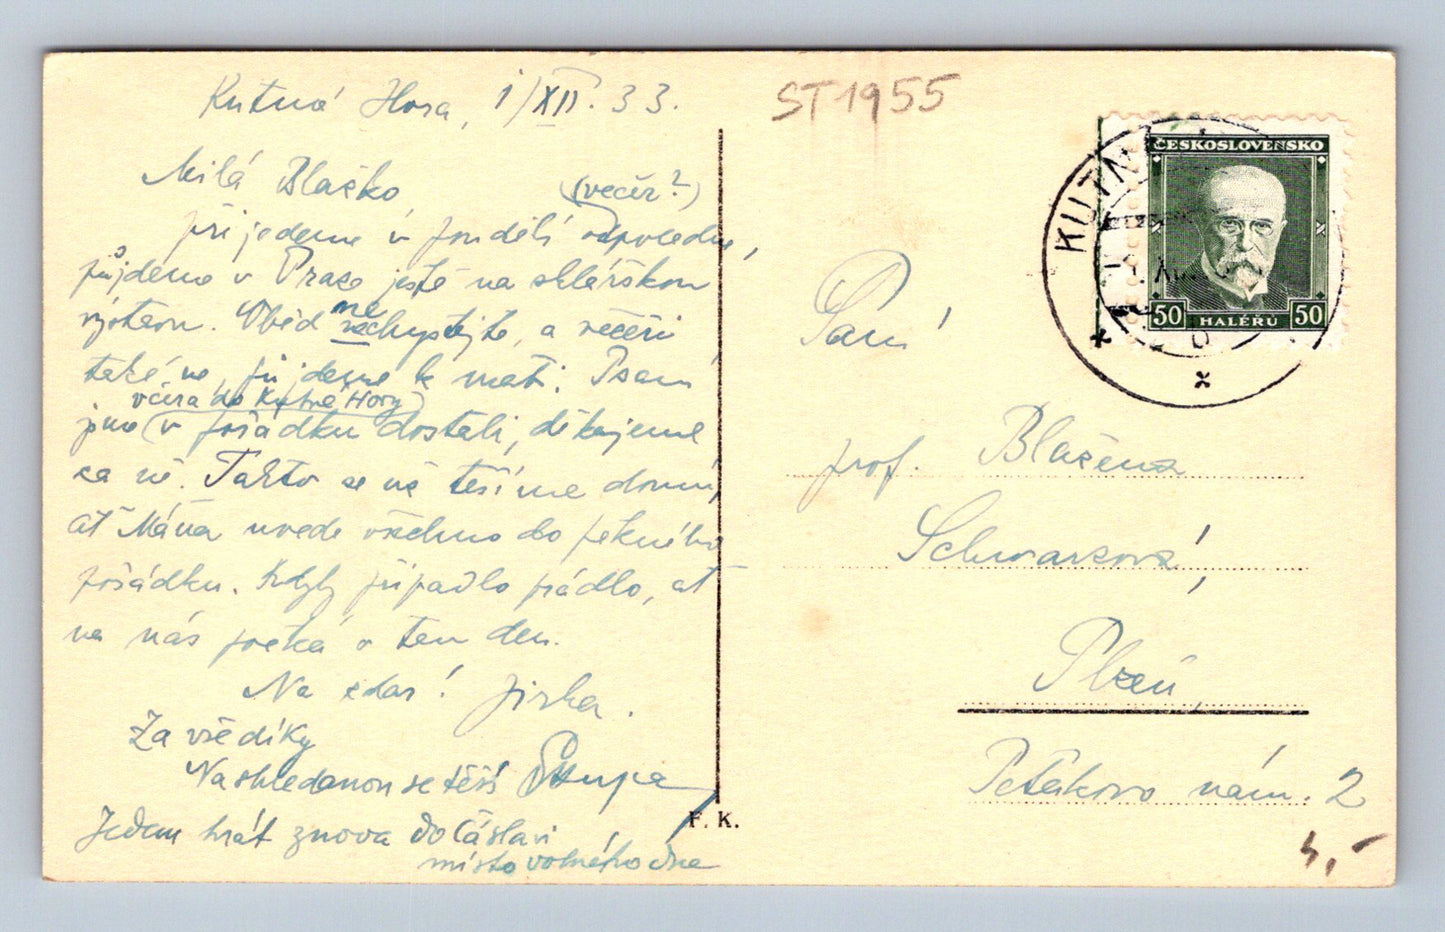 Kutná Hora, 1/XII. 33.
ST1955
Milá Blažko,
(večer?)
přijedeme v pondělí odpoledne,
půjdeme v Praze ještě na sklářskou
výstavu. Oběd nechystejte, a večeři
ne
také ne, půjdeme k mati. Psaní
včera do Kutné Hory
jsme v pořádku dostali, děkujeme
za ně. Takto se už těšíme domů,
ať Máňa uvede všechno do pěkného
pořádku. Kdyby připadlo prádlo, ať
na nás počká o ten den.
Na zdar! Jirka.
Za vše díky
Na shledanou se těší
Jedem hrát znova do Čáslavi
místo volného dne
F. K.
KUTNÁ
ČESKOSLOVENSKO
50 HALÉŘŮ 50
Paní
prof. Blažena
Schwarzová,
Plzeň,
Petákovo nám. 2
4,-